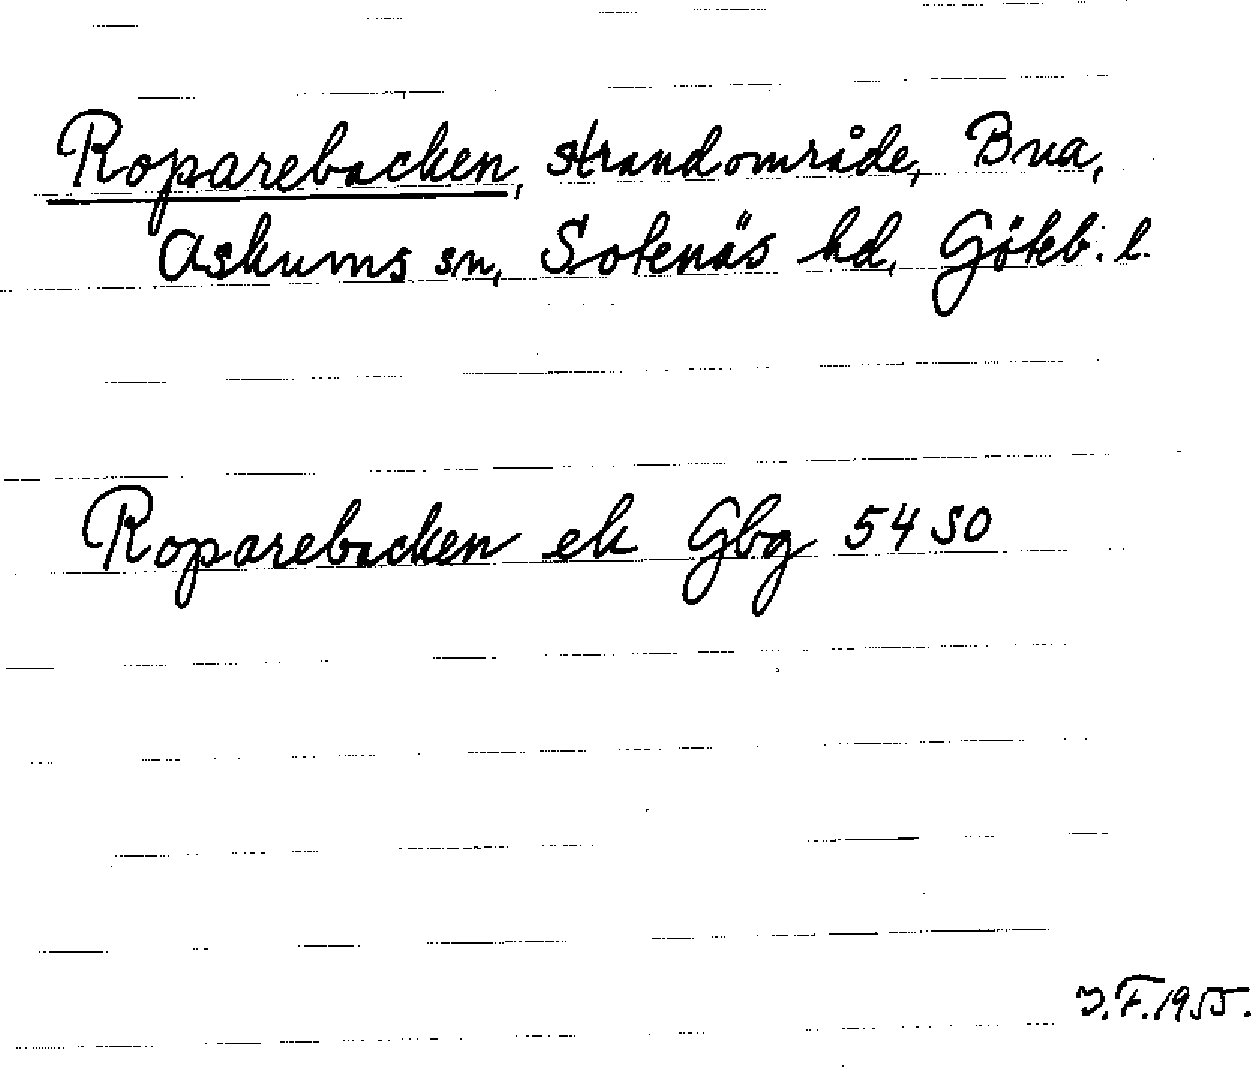 Roparebacken, strandområde, Bua,
Askums sn, Sotenäs hd, Göteb. l.
Roparebacken ek Gbg 54 SO
J.F. 1955.